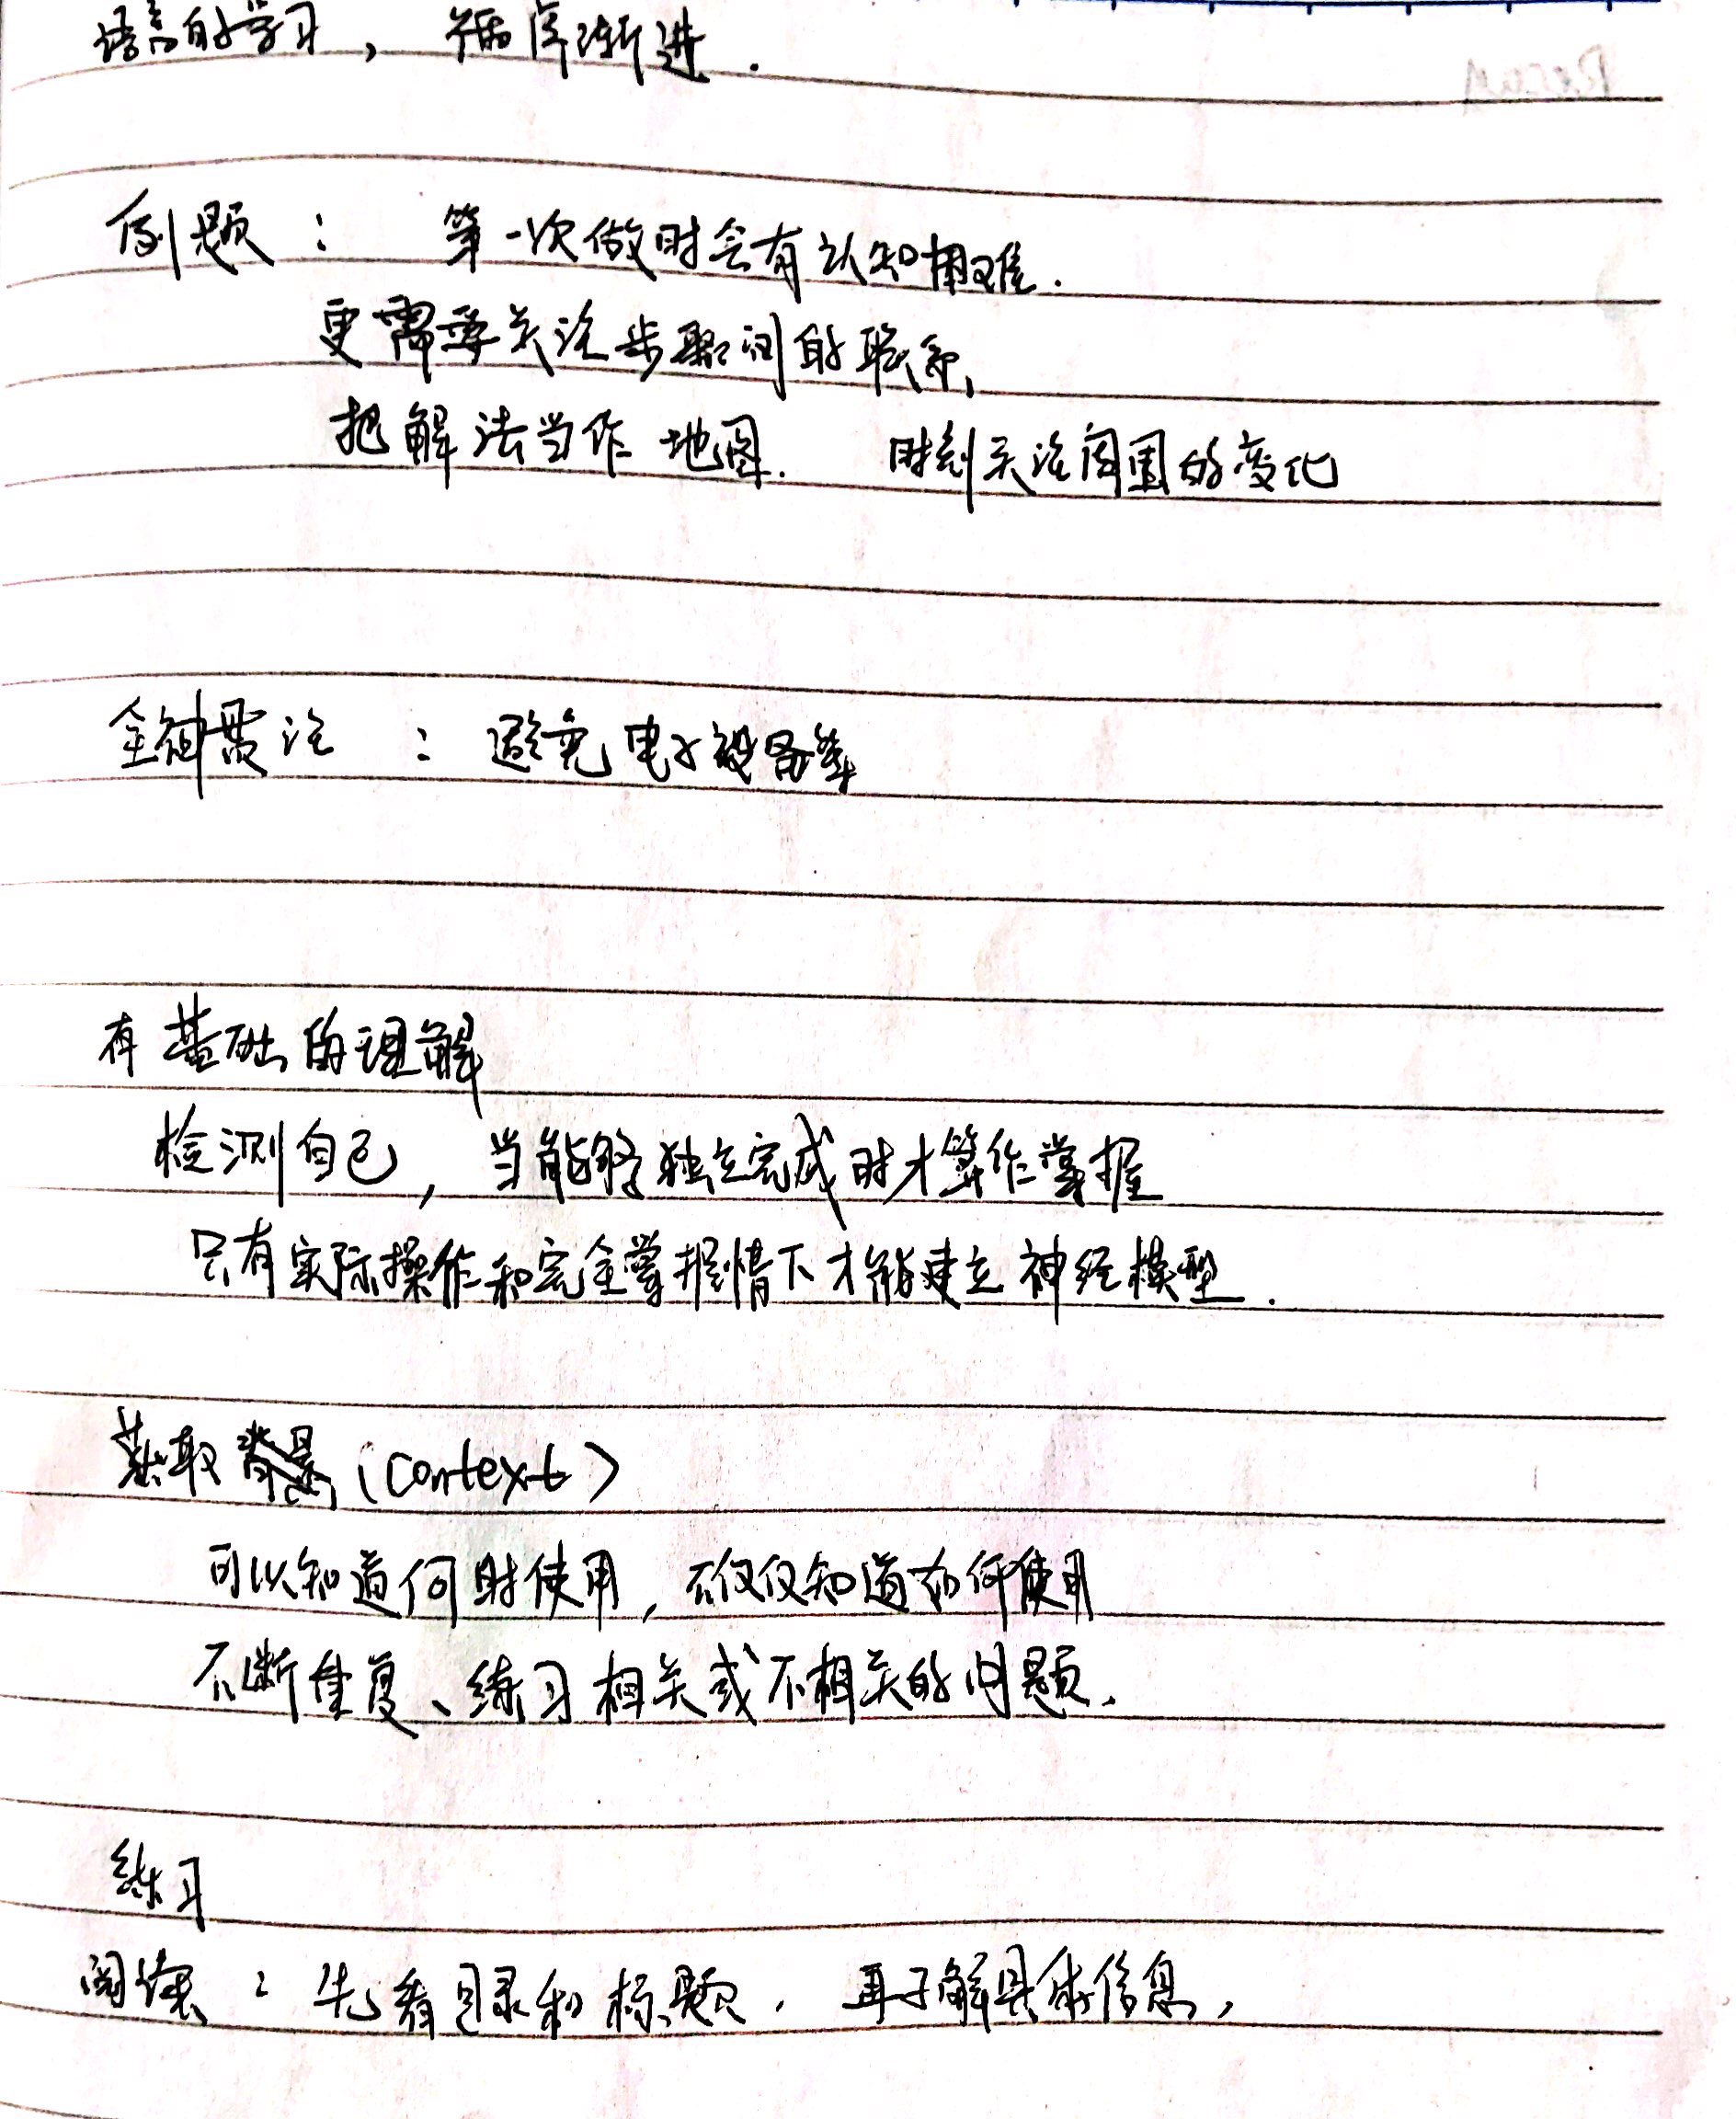 语言的学习，循序渐进．
例题：第一次做时会有认知困难．
更需要关注步骤间的联系，
把解法当作地图．时刻关注周围的变化
全神贯注：避免电子设备等
有基础的理解
检测自己，当能够独立完成时才算作掌握
只有实际操作和完全掌握情下才能建立神经模型．
获取背景（context）
可以知道何时使用，不仅仅知道如何使用
不断重复、练习相关或不相关的问题．
练习
阅读：先看目录和标题．再了解具体信息，